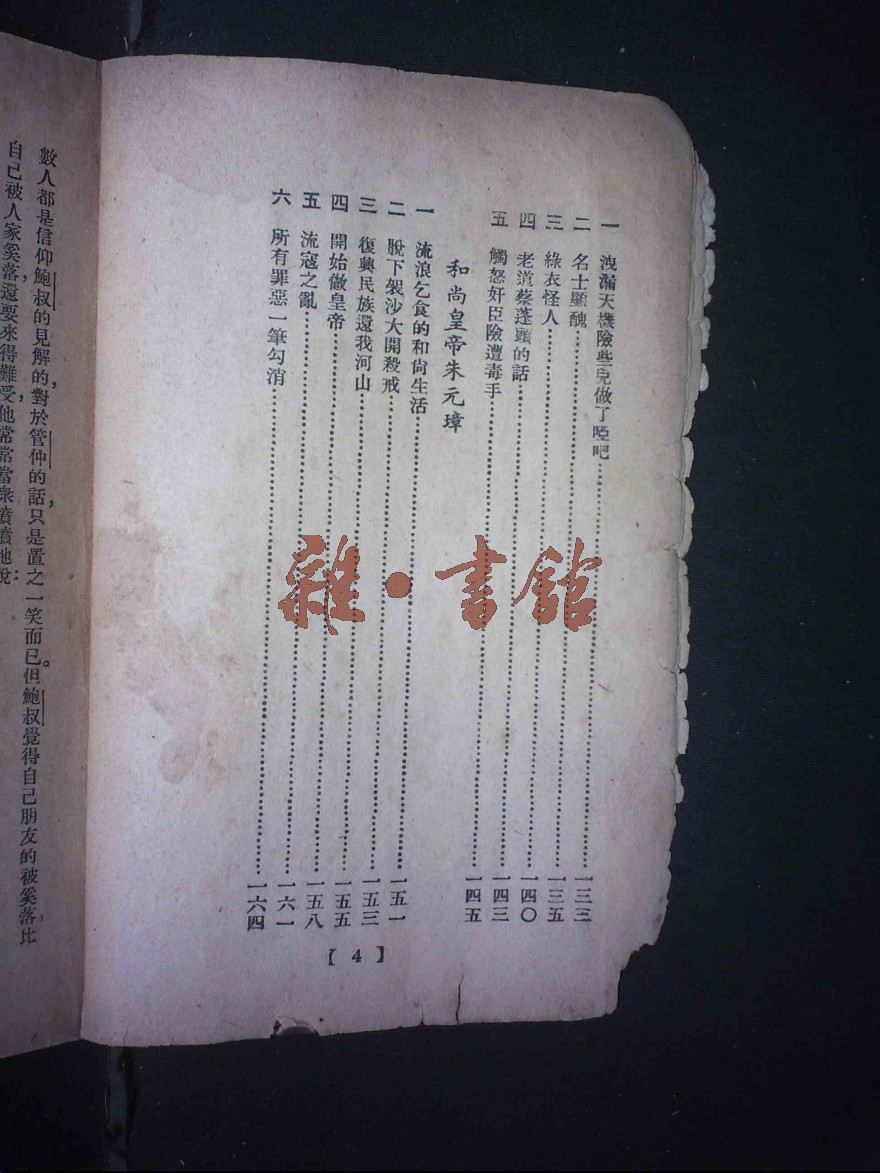 一　洩漏天機險些兒做了啞吧……一三三
二　名士顯醜……一三五
三　綠衣怪人……一四〇
四　老道蔡蓬頭的話……一四三
五　觸怒奸臣險遭毒手……一四五
和尚皇帝朱元璋
一　流浪乞食的和尚生活……一五一
二　脫下袈沙大開殺戒……一五三
三　復興民族還我河山……一五五
四　開始做皇帝……一五八
五　流寇之亂……一六一
六　所有罪惡一筆勾消……一六四
【4】
數人都是信仰鮑叔的見解的，對於管仲的話，只是置之一笑而已。但鮑叔覺得自己朋友的被奚落，比
自己被人家奚落，還要來得難受，他常常當衆憤憤地說：
雜·書館